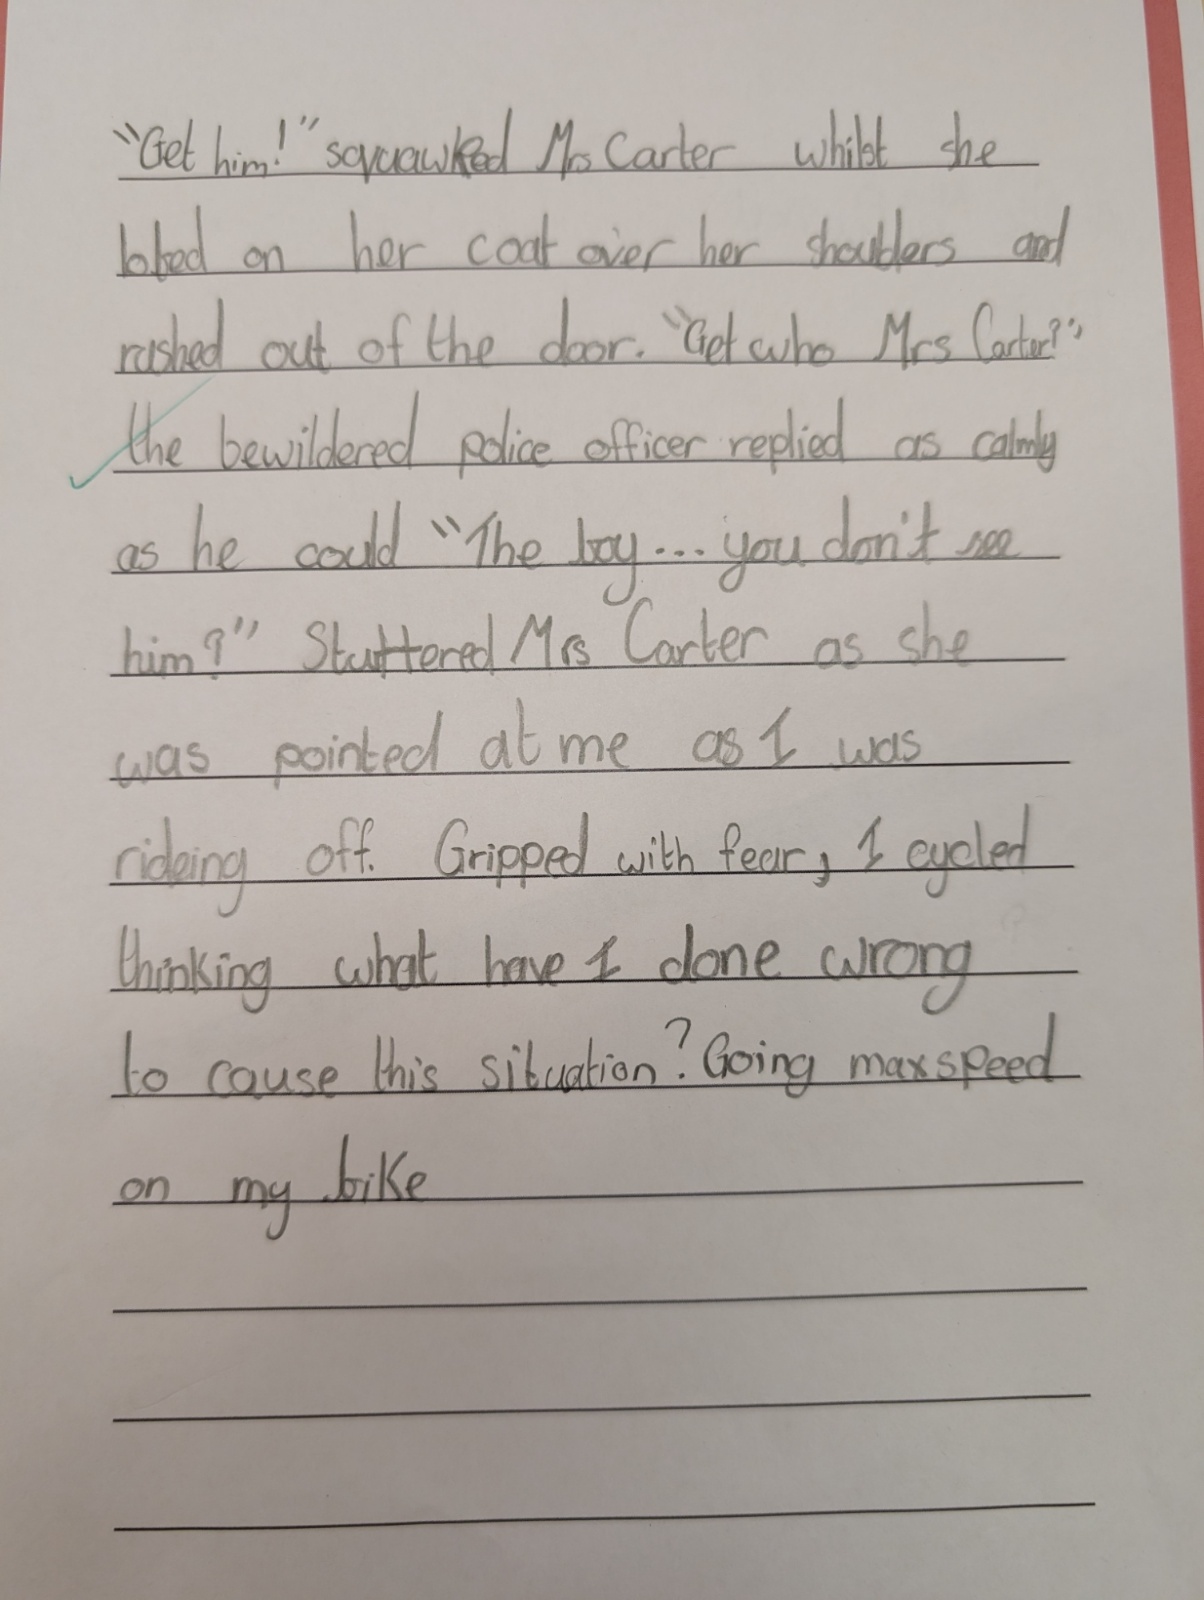 "Get him!" squawked Mrs Carter whilst she
lobed on her coat over her shoulders and
rushed out of the door. "Get who Mrs Carter?"
the bewildered police officer replied as calmly
as he could "The boy... you don't see
him?" Stuttered Mrs Carter as she
was pointed at me as I was
rideing off. Gripped with fear, I cycled
thinking what have I done wrong
to cause this situation? Going max speed
on my bike